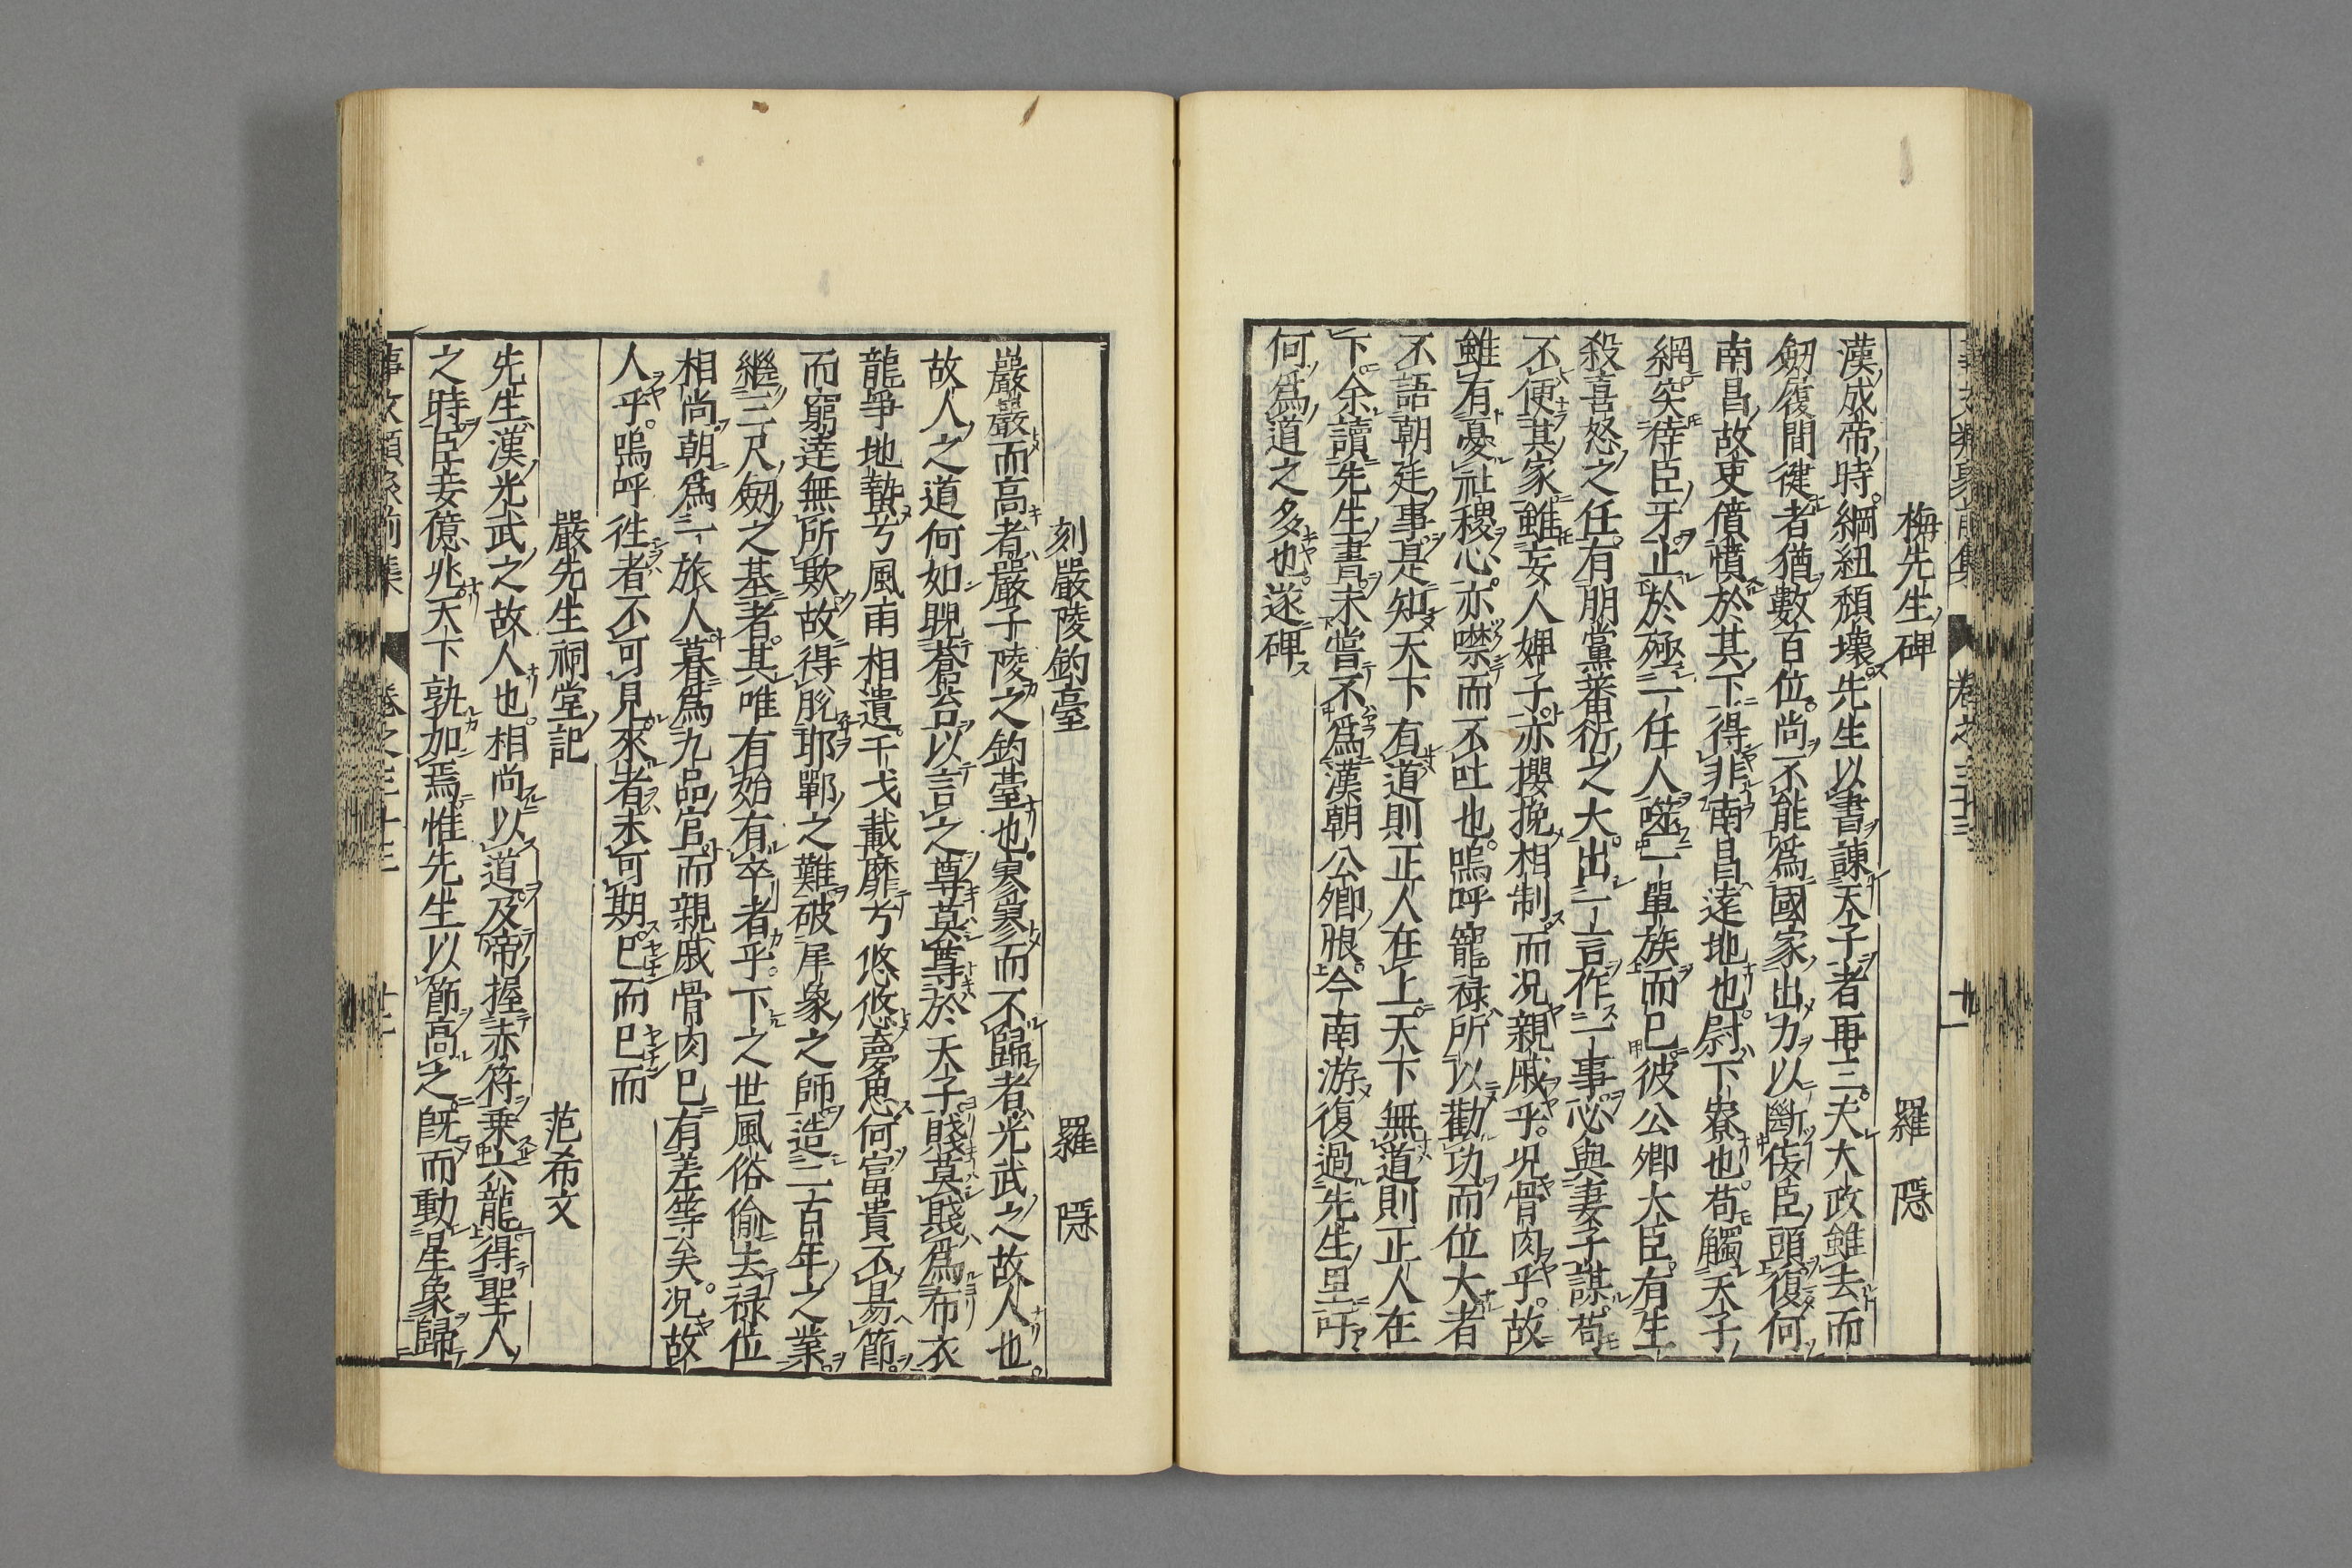 梅先生碑　羅隱
漢成帝時綱紐頹壞先生以書諫天子者再三夫大政雖去而
劒履間健者猶數百位尚不能爲國家出力以斷佞臣頭復何
南昌故吏僨憤於其下得非南昌逺地也尉下寮也苟觸天子
網突倖臣牙止於殛一任人噬一單族而已彼公卿大臣有生
殺喜怒之任有朋黨蕃衍之大出一言作一事必與妻子謀苟
不便其家雖妾人婢子亦攖挽相制而况親戚乎况骨肉乎故
雖有憂社稷心亦噤而不吐也嗚呼寵禄所以勸功而位大者
不語朝廷事是知天下有道則正人在上天下無道則正人在
下余讀先生書未嘗不爲漢朝公卿恨今南游復過先生里吁
何爲道之多也遂碑
刻嚴陵釣臺　羅隱
巖巖而高者嚴子陵之釣臺也寥寥而不歸者光武之故人也
故人之道何如睨蒼苔以言之尊莫尊於天子賤莫賤爲布衣
龍爭地蟄兮風雨相遺干戈載靡兮悠悠夢思何富貴不易節
而窮逹無所欺故得脫邯鄲之難破犀象之師造二百年之業
繼三尺劒之基者其唯有始有卒者乎下之世風俗偷去禄位
相尚朝爲一旅人暮爲九品官而親戚骨肉已有差等矣况故
人乎嗚呼徃者不可見來者未可期已而已而
嚴先生祠堂記　范希文
先生漢光武之故人也相尚以道及帝握赤符乗六龍得聖人
之時臣妾億兆天下孰加焉惟先生以節高之旣而動星象歸
事文類聚前集　卷之三十三